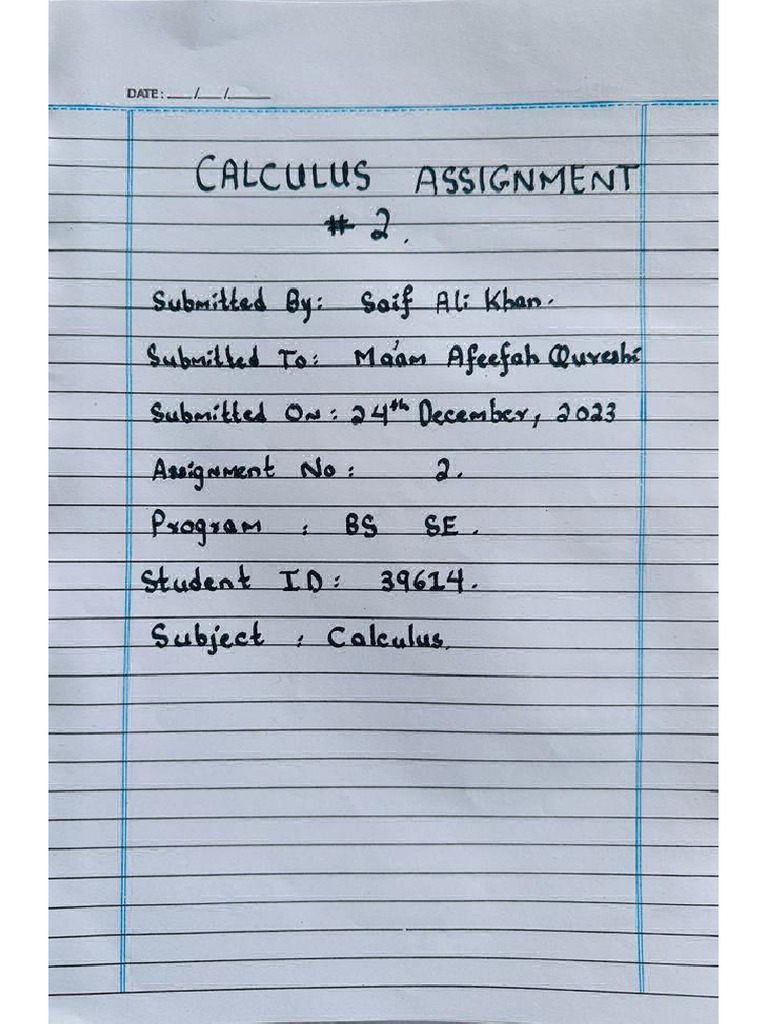 DATE: __/__/____
CALCULUS ASSIGNMENT
# 2.
Submitted By: Saif Ali Khan.
Submitted To: Ma'am Afeefah Qureshi
Submitted On: 24th December, 2023
Assignment No: 2.
Program : BS SE.
Student ID: 39614.
Subject : Calculus.